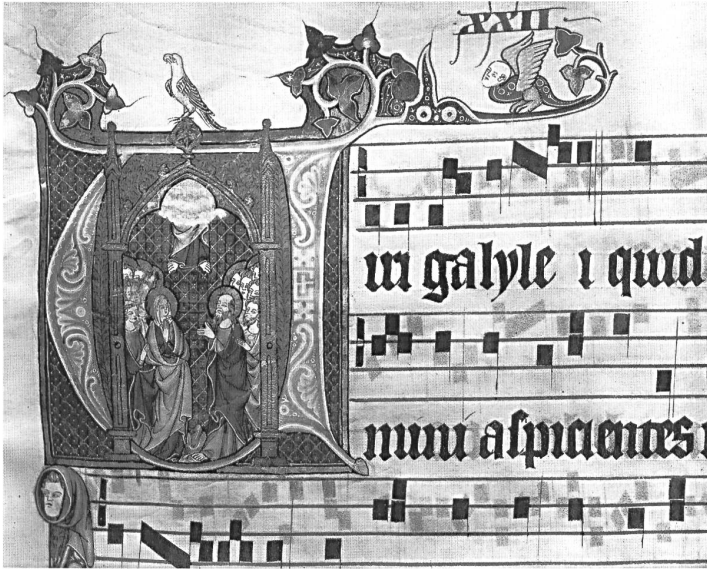 XXII
Viri galyle i quid
mini aſpicientes